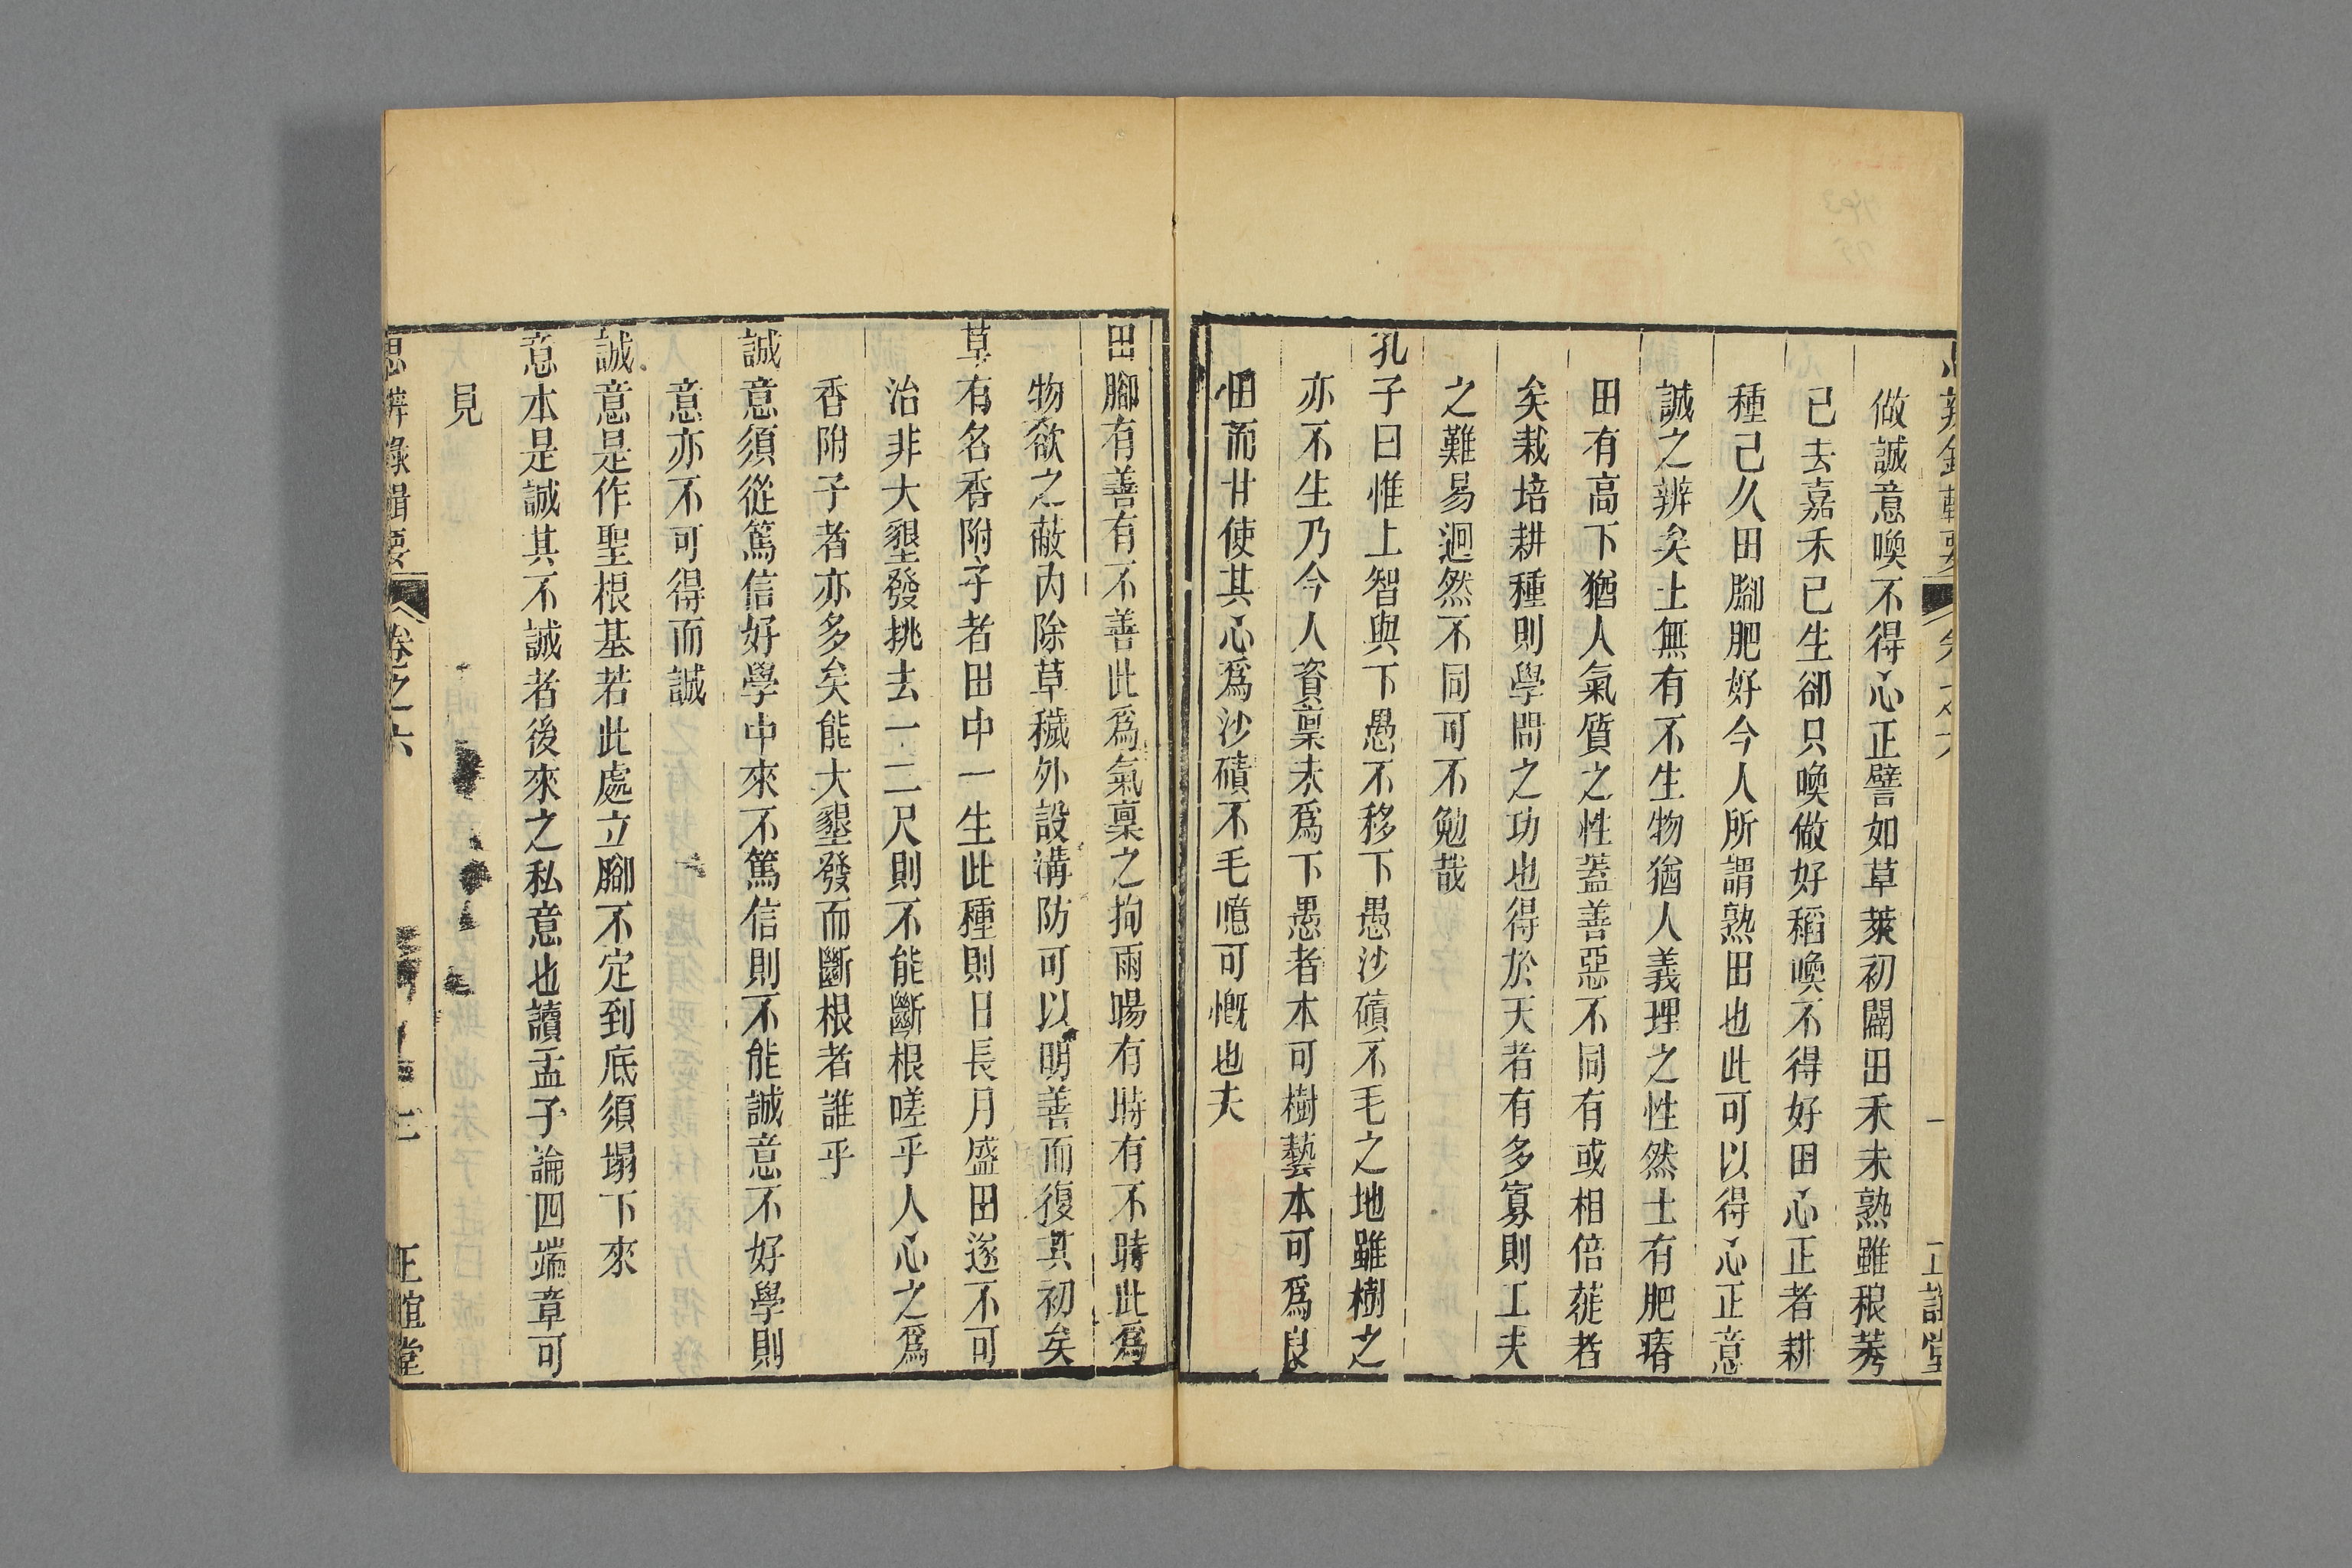 做誠意喚不得心正譬如草萊初闢田禾未熟雖稂莠
已去嘉禾已生卻只喚做好稻喚不得好田心正者耕
種已久田腳肥好今人所謂熟田也此可以得心正意
誠之辨矣土無有不生物猶人義理之性然土有肥瘠
田有高下猶人氣質之性蓋善惡不同有或相倍蓰者
矣栽培耕種則學問之功也得於天者有多寡則工夫
之難易迥然不同可不勉哉
孔子曰惟上智與下愚不移下愚沙磧不毛之地雖樹之
亦不生乃今人資稟未爲下愚者本可樹藝本可爲良
田而甘使其心爲沙磧不毛噫可慨也夫
田腳有善有不善此爲氣稟之拘雨暘有時有不時此爲
物欲之蔽內除草穢外設溝防可以明善而復其初矣
草有名香附子者田中一生此種則日長月盛田遂不可
治非大墾發挑去一二尺則不能斷根嗟乎人心之爲
香附子者亦多矣能大墾發而斷根者誰乎
誠意須從篤信好學中來不篤信則不能誠意不好學則
意亦不可得而誠
誠意是作聖根基若此處立腳不定到底須塌下來
意本是誠其不誠者後來之私意也讀孟子論四端章可
見
思辨錄輯要 卷之六 二 正誼堂